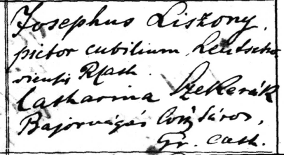 Josephus Liszony,
pictor cubilium, Leutscho
viensis R. Cath.
Catharina Szekerák
Bajorvágás, Cott. Sáros,
Gr. cath.